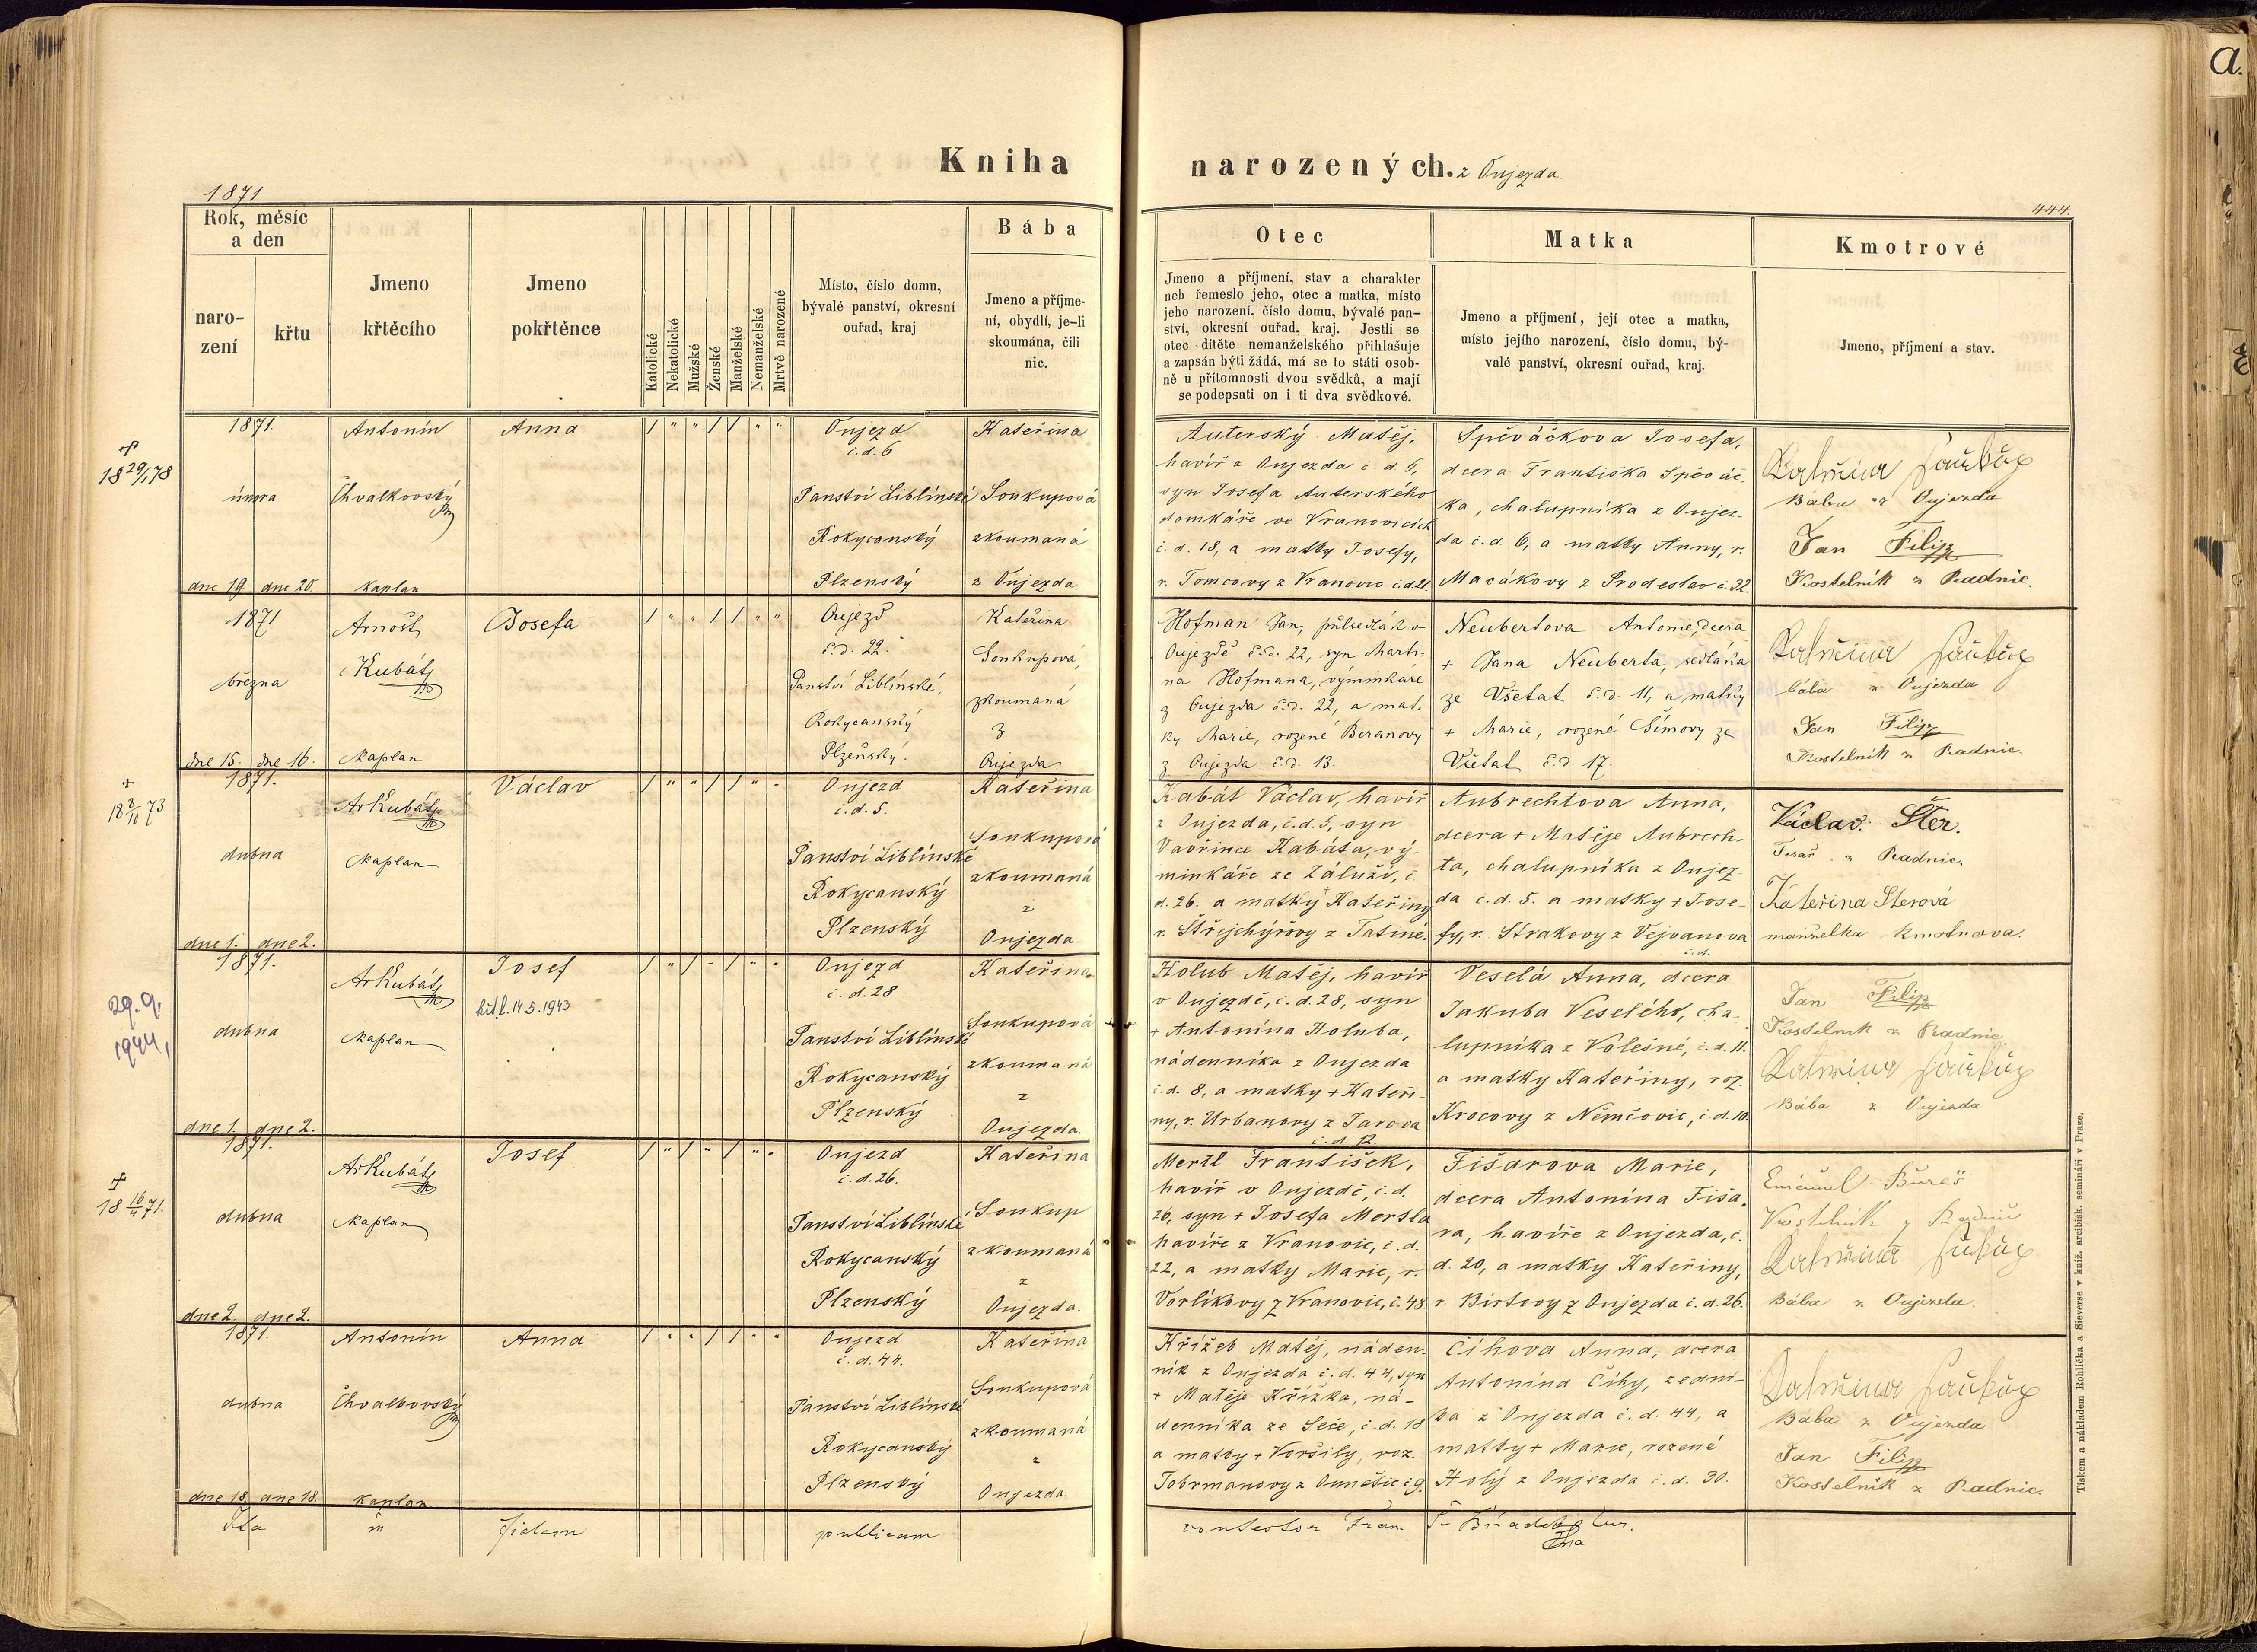 Kniha narozených. z Oujezda
1871
444.
a.
Rok, měsíc
a den
naro-
zení
křtu
Jmeno
křtěcího
Jmeno
pokřtěnce
Katolické
Nekatolické
Mužské
Ženské
Manželské
Nemanželské
Mrtvě narozené
Místo, číslo domu,
bývalé panství, okresní
ouřad, kraj
Bába
Jmeno a příjme-
ní, obydlí, je-li
skoumána, čili
nic.
Otec
Jmeno a příjmení, stav a charakter
neb řemeslo jeho, otec a matka, místo
jeho narození, číslo domu, bývalé pan-
ství, okresní ouřad, kraj. Jestli se
otec dítěte nemanželského přihlašuje
a zapsán býti žádá, má se to státi osob-
ně u přítomnosti dvou svědků, a mají
se podepsati on i ti dva svědkové.
Matka
Jmeno a příjmení, její otec a matka,
místo jejího narození, číslo domu, bý-
valé panství, okresní ouřad, kraj.
Kmotrové
Jmeno, příjmení a stav.
18 29/1 78
1871.
února
dne 19. dne 20.
Antonín
Chvalkovský
kaplan
Anna
/ " " / / " "
Oujezd
č.d. 6
Panství Liblínské
Rokycanský
Plzenský
Kateřina
Soukupová
zkoumaná
z Oujezda.
Auterský Matěj,
havíř z Oujezda č. d. 6,
syn Josefa Auterského
domkáře ve Vranovicích
č. d. 18, a matky Josefy,
r. Tomcovy z Vranovic č.d. 21.
Spěváčkova Josefa,
dcera Františka Spěváč-
ka, chalupníka z Oujez-
da č. d. 6, a matky Anny, r.
Macákovy z Prodeslav č. 32.
Kateřina Saukup
Bába z Oujezda
Jan Filip
Kostelník z Radnic.
1871
března
dne 15. dne 16.
Arnošt
Kubát
kaplan
Josefa
/ " " / / " "
Oujezd
č.d. 22.
Panství Liblínské,
Rokycanský
Plzeňský.
Kateřina
Soukupová,
zkoumaná
z
Oujezda.
Hofman Jan, půlsedlák v
Oujezdě č.d. 22, syn Marti-
na Hofmana, výminkáře
z Oujezda č.d. 22, a mat-
ky Marie, rozené Beranovy
z Oujezda č.d. 13.
Neubertova Antonie, dcera
+ Jana Neuberta, sedláka
ze Všetat č.d. 11, a matky
+ Marie, rozené Šímovy ze
Všetat č.d. 17.
Kateřina Saukup
bába z Oujezda
Jan Filip
Kostelník z Radnic.
+
18 2/10 73
1871.
dubna
dne 1. dne 2.
Ar Kubát
kaplan
Václav
/ " " / / " "
Oujezd
č. d. 5.
Panství Liblínské
Rokycanský
Plzenský
Kateřina
Soukupová
zkoumaná
z
Oujezda
Kabát Václav, havíř
z Oujezda, č. d. 5, syn
Vavřince Kabáta, vý-
minkáře ze Záluží, č.
d. 26. a matky + Kateřiny
r. Štřejchýřovy z Tatiné.
Aubrechtova Anna,
dcera + Matěje Aubrech-
ta, chalupníka z Oujez-
da č. d. 5. a matky + Jose-
fy, r. Strakovy z Vejvanova
č. d.
Václav Šter.
Tesař z Radnic.
Kateřina Sterová
manželka kmotrova.
29. 9.
1944,
1871.
dubna
dne 1. dne 2.
Ar Kubát
kaplan
Josef
křt. l. 14. 5. 1943
/ " / " / " "
Oujezd
č. d. 28
Panství Liblínské
Rokycanský
Plzenský
Kateřina
Soukupová
zkoumaná
z
Oujezda.
Holub Matěj, havíř
v Oujezdě, č. d. 28, syn
+ Antonína Holuba,
nádenníka z Oujezda
č. d. 8, a matky + Kateři-
ny, r. Urbanovy z Jarova
č. d. 12.
Veselá Anna, dcera
Jakuba Veselého, cha-
lupníka z Volešné, č. d. 11.
a matky Kateřiny, roz.
Krocovy z Němčovic, č. d. 10.
Jan Filip
Kostelník z Radnic
Kateřina Saukup
Bába z Oujezda
18 16/4 71.
1871.
dubna
dne 2. dne 2.
Ar Kubát
kaplan
Josef
/ " / " / " "
Oujezd
č. d. 26.
Panství Liblínské
Rokycanský
Plzenský
Kateřina
Soukup
zkoumaná
z
Oujezda.
Mertl František,
havíř v Oujezdě, č. d.
26, syn + Josefa Mertla
havíře z Vranovic, č. d.
22, a matky Marie, r.
Vorlíkovy z Vranovic, č. 48.
Fišarova Marie,
dcera Antonína Fiša-
ra, havíře z Oujezda, č.
d. 20, a matky Kateřiny,
r. Birtovy z Oujezda č. d. 26.
Bureš
Kostelník z Radnic
Kateřina Saukup
Bába z Oujezda.
1871.
dubna
dne 18. dne 18.
Antonín
Chvalkovský
kaplan
Anna
/ " " / / " "
Oujezd
č. d. 44.
Panství Liblínské
Rokycanský
Plzenský
Kateřina
Soukupová
zkoumaná
z
Oujezda.
Křížek Matěj, náden-
ník z Oujezda č. d. 44, syn
+ Matěje Křížka, ná-
denníka ze Seče, č. d. 18
a matky + Voršily, roz.
Tobrmanovy z Ounětic č. 9.
Číhova Anna, dcera
Antonína Číhy, zední-
ka z Oujezda č. d. 44, a
matky + Marie, rozené
Holý z Oujezda č. d. 30.
Kateřina Saukup
Bába z Oujezda
Jan Filip
Kostelník z Radnic.
Ita in fidem publicam
Fran.
Tiskem a nákladem Rohlíčka a Sieverse v kníž. arcibisk. semináři v Praze.